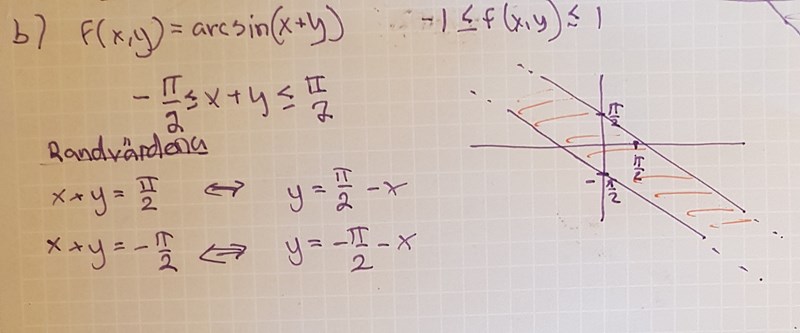 b) f(x,y) = arcsin(x+y) -1 ≤ f(x,y) ≤ 1
-π/2 ≤ x+y ≤ π/2
Randvärdena
x+y = π/2 ⇔ y = π/2 - x
x+y = -π/2 ⇔ y = -π/2 - x
π/2
π/2
-π/2